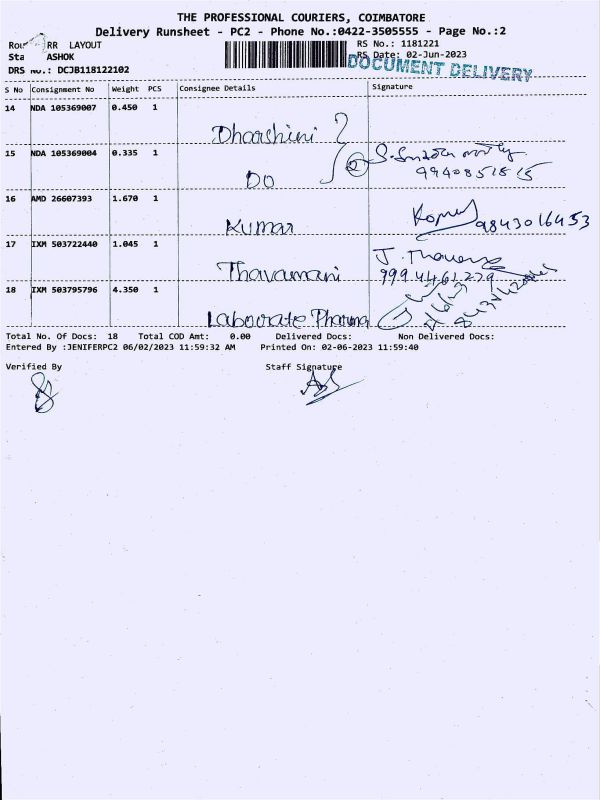 THE PROFESSIONAL COURIERS, COIMBATORE
Delivery Runsheet - PC2 - Phone No.:0422-3505555 - Page No.:2
RR LAYOUT
RS No.: 1181221
ASHOK
RS Date: 02-Jun-2023
DOCUMENT DELIVERY
DRS No.: DCJB118122102
S No Consignment No Weight PCS Consignee Details Signature
14 NDA 105369007 0.450 1
Dharshini
15 NDA 105369004 0.335 1
DO
9940851815
16 AMD 26607393 1.670 1
Kumar
9843016453
17 IXM 503722440 1.045 1
Thavamani
J. Thavama
9994461279
18 IXM 503795796 4.350 1
Laborate Pharma
Total No. Of Docs: 18 Total COD Amt: 0.00 Delivered Docs: Non Delivered Docs:
Entered By :JENIFERPC2 06/02/2023 11:59:32 AM Printed On: 02-06-2023 11:59:40
Verified By Staff Signature